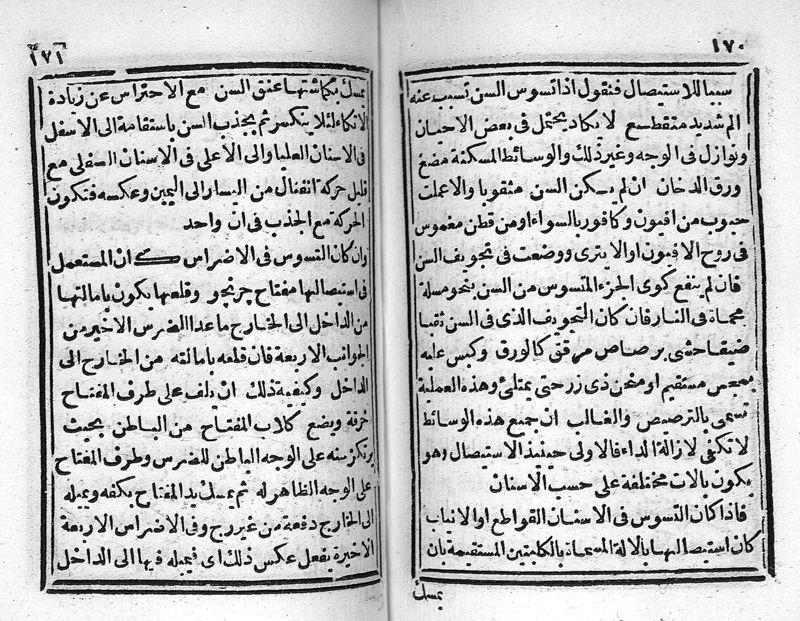 ١٧٠
سببا للاستيصال فنقول اذا تسوس السن تسبب عنه
الم شديد متقطع لا يكاد يحتمل فى بعض الاحيان
ونوازل فى الوجه وغير ذلك والوسائط المسكنة مضغ
ورق الدخان ان لم يسكن السن مثقوبا والاعملت
حبوب من افيون وكافور بالسواء او من قطن مغموس
فى روح الافيون او الايترى ووضعت فى تجويف السن
فان لم ينفع كوى الجزء المتسوس من السن بنحو مسلة
محماة فى النار فان كان التجويف الذى فى السن ثقبا
ضيقا حشى برصاص مرقق كالورق وكبس عليه
بمجس مستقيم او منحن ذى زر حتى يمتلئ وهذه العملية
تسمى بالترصيص والغالب ان جميع هذه الوسائط
لا تكفى لازالة الداء فالاولى حينئذ الاستيصال وهو
يكون بالات مختلفة على حسب الاسنان
فاذا كان التسوس فى الاسنان القواطع او الانياب
كان استيصالها بالالة المسماة بالكلبتين المستقيمة بان
يمسك
١٧١
يمسك بكماشتها عنق السن مع الاحتراس عن زيادة
الاتكاء لئلا ينكسر ثم يجذب السن باستقامة الى الاسفل
فى الاسنان العليا والى الاعلى فى الاسنان السفلى مع
قليل حركة انفتال من اليسار الى اليمين وعكسه فتكون
الحركة مع الجذب فى ان واحد
وان كان التسوس فى الاضراس كان المستعمل
فى استيصالها مفتاح جرنجو وقلعها يكون بامالتها
من الداخل الى الخارج ماعدا الضرس الاخير من
الجوانب الاربعة فان قلعه بامالته من الخارج الى
الداخل وكيفية ذلك ان يلف على طرف المفتاح
خرقة ويضع كلاب المفتاح من الباطن بحيث
يرتكز سنه على الوجه الباطن للضرس وطرف المفتاح
على الوجه الظاهر له ثم يمسك يد المفتاح بكفه ويميله
الى الخارج دفعة من غير رج وفى الاضراس الاربعة
الاخيرة يفعل عكس ذلك اى يميله فيها الى الداخل